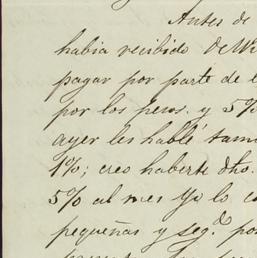 Antes de
habia recibido de
pagar por parte de
por los pesos. y 5%
ayer les hablé tam
1%; creo haberte dho.
5% al mes Yo lo
pequeñas y seg.d po